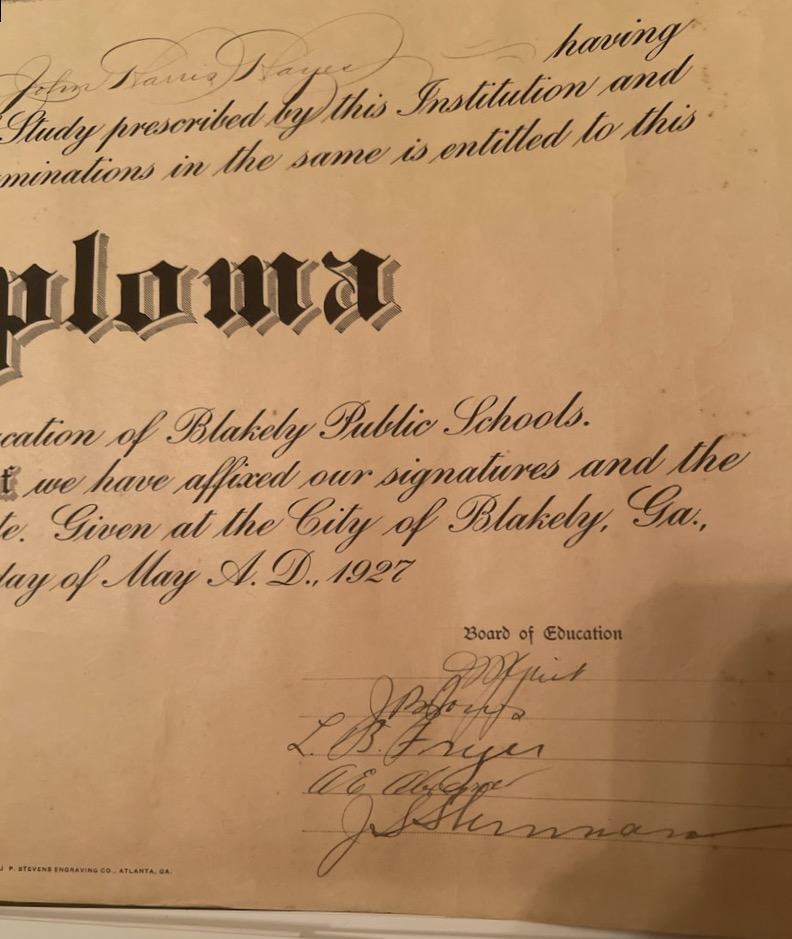 John Harris Hayes having
Study prescribed by this Institution and
minations in the same is entitled to this
ploma
cation of Blakely Public Schools.
f we have affixed our signatures and the
te. Given at the City of Blakely, Ga.,
day of May A. D., 1927
Board of Education
L. B. Fryer
A E
J S Sherman
J P. STEVENS ENGRAVING CO., ATLANTA, GA.